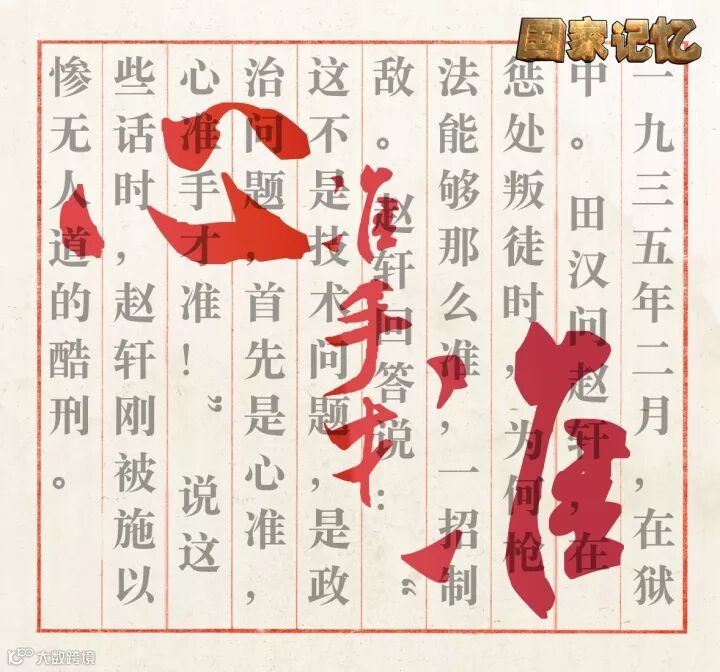 国家记忆
一九三五年二月，在狱
中。 田汉问赵轩，在
惩处叛徒时，为何枪
法能够那么准，一招制
敌。 赵轩回答说：“
这不是技术问题，是政
治问题，首先是心准，
心准手才准！” 说这
些话时，赵轩刚被施以
惨无人道的酷刑。
心准手才准
大数跨境